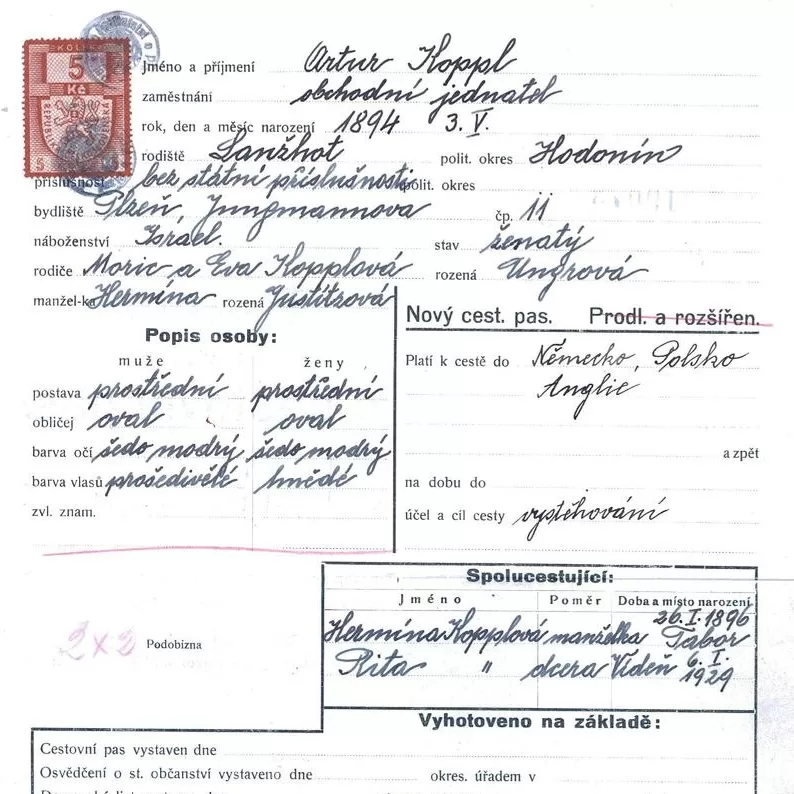 KOLEK
5
Kč
Jméno a příjmení Artur Koppl
zaměstnání obchodní jednatel
rok, den a měsíc narození 1894 3. V.
rodiště Lanžhot polit. okres Hodonín
příslušnost bez státní příslušnosti polit. okres
bydliště Plzeň, Jungmannova čp. 11
náboženství Israel. stav ženatý
rodiče Moric a Eva Kopplová rozená Ungrová
manžel-ka Hermína rozená Justitzová
Nový cest. pas. Prodl. a rozšířen.
Popis osoby:
muže ženy
postava prostřední prostřední
obličej oval oval
barva očí šedo modrý šedo modrý
barva vlasů prošedivělé hnědé
zvl. znam.
Platí k cestě do Německo, Polsko
Anglie
a zpět
na dobu do
účel a cíl cesty vystěhování
Spolucestující:
Jméno Poměr Doba a místo narození
Hermína Kopplová manželka 26. I. 1896 Tábor
Rita " dcera Vídeň 6. I. 1929
2x2 Podobizna
Vyhotoveno na základě:
Cestovní pas vystaven dne
Osvědčení o st. občanství vystaveno dne okres. úřadem v